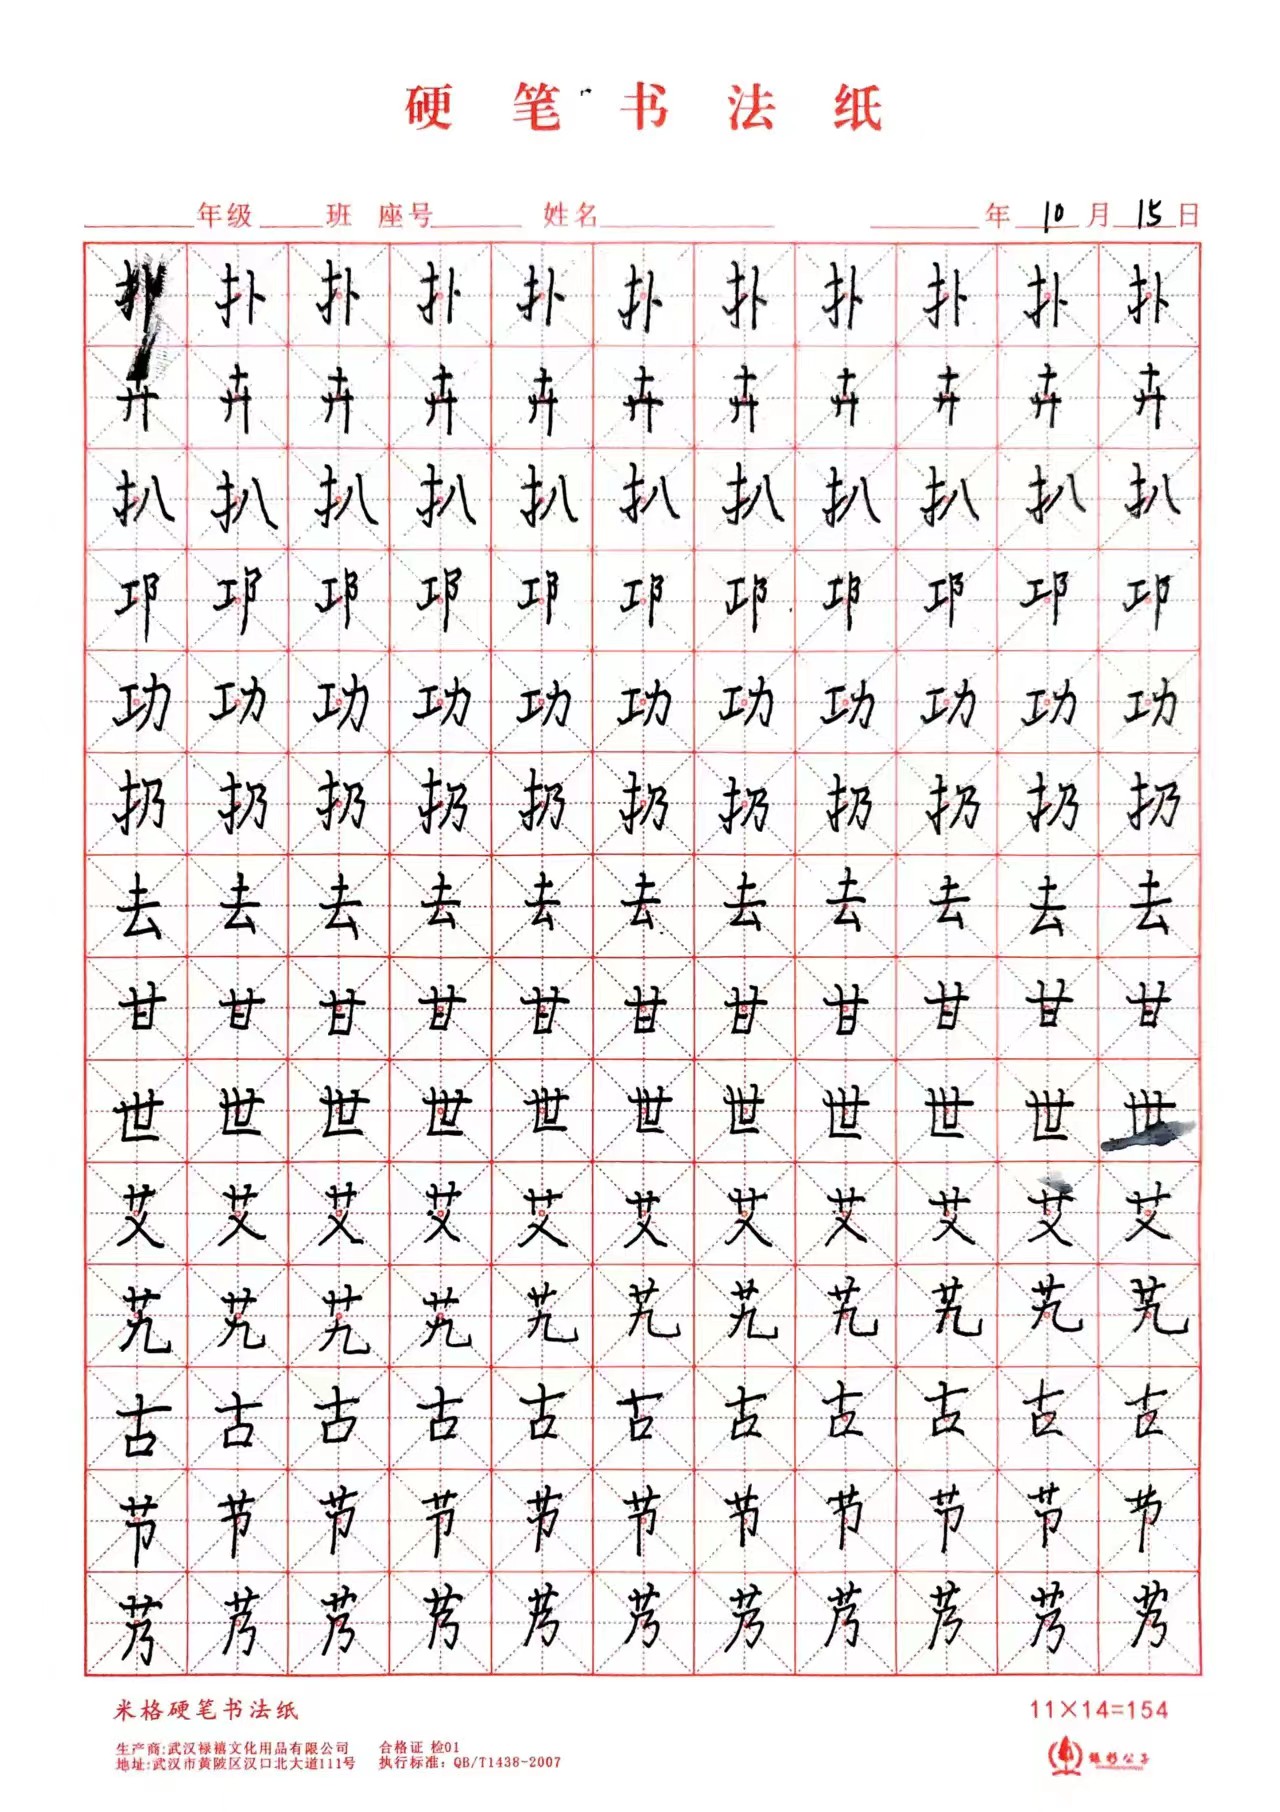 硬笔书法纸
年级 班 座号 姓名 年 10 月 15 日
扑扑扑扑扑扑扑扑扑扑扑
卉卉卉卉卉卉卉卉卉卉卉
扒扒扒扒扒扒扒扒扒扒扒
邛邛邛邛邛邛邛邛邛邛邛
功功功功功功功功功功功
扔扔扔扔扔扔扔扔扔扔扔
去去去去去去去去去去去
甘甘甘甘甘甘甘甘甘甘甘
世世世世世世世世世世世
艾艾艾艾艾艾艾艾艾艾艾
艽艽艽艽艽艽艽艽艽艽艽
古古古古古古古古古古古
节节节节节节节节节节节
艿艿艿艿艿艿艿艿艿艿艿
米格硬笔书法纸 11×14=154
生产商:武汉禄禧文化用品有限公司 合格证 检01
地址:武汉市黄陂区汉口北大道111号 执行标准: QB/T1438-2007